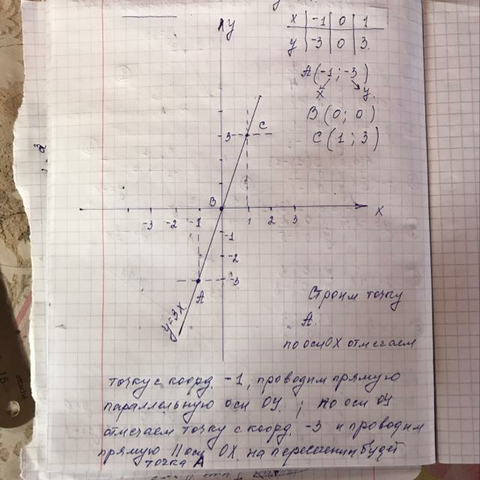 y
x | -1 | 0 | 1
y | -3 | 0 | 3
A(-1; -3)
x y
B(0; 0)
C(1; 3)
3 C
B
-3 -2 -1 1 2 3 x
-1
-2
-3
A
y=3x
Строим точку
A.
по оси OX отмечаем
точку с коорд. -1, проводим прямую
параллельную оси OY; по оси OY
отмечаем точку с коорд. -3 и проводим
прямую || оси OX, на пересечении будет
точка A